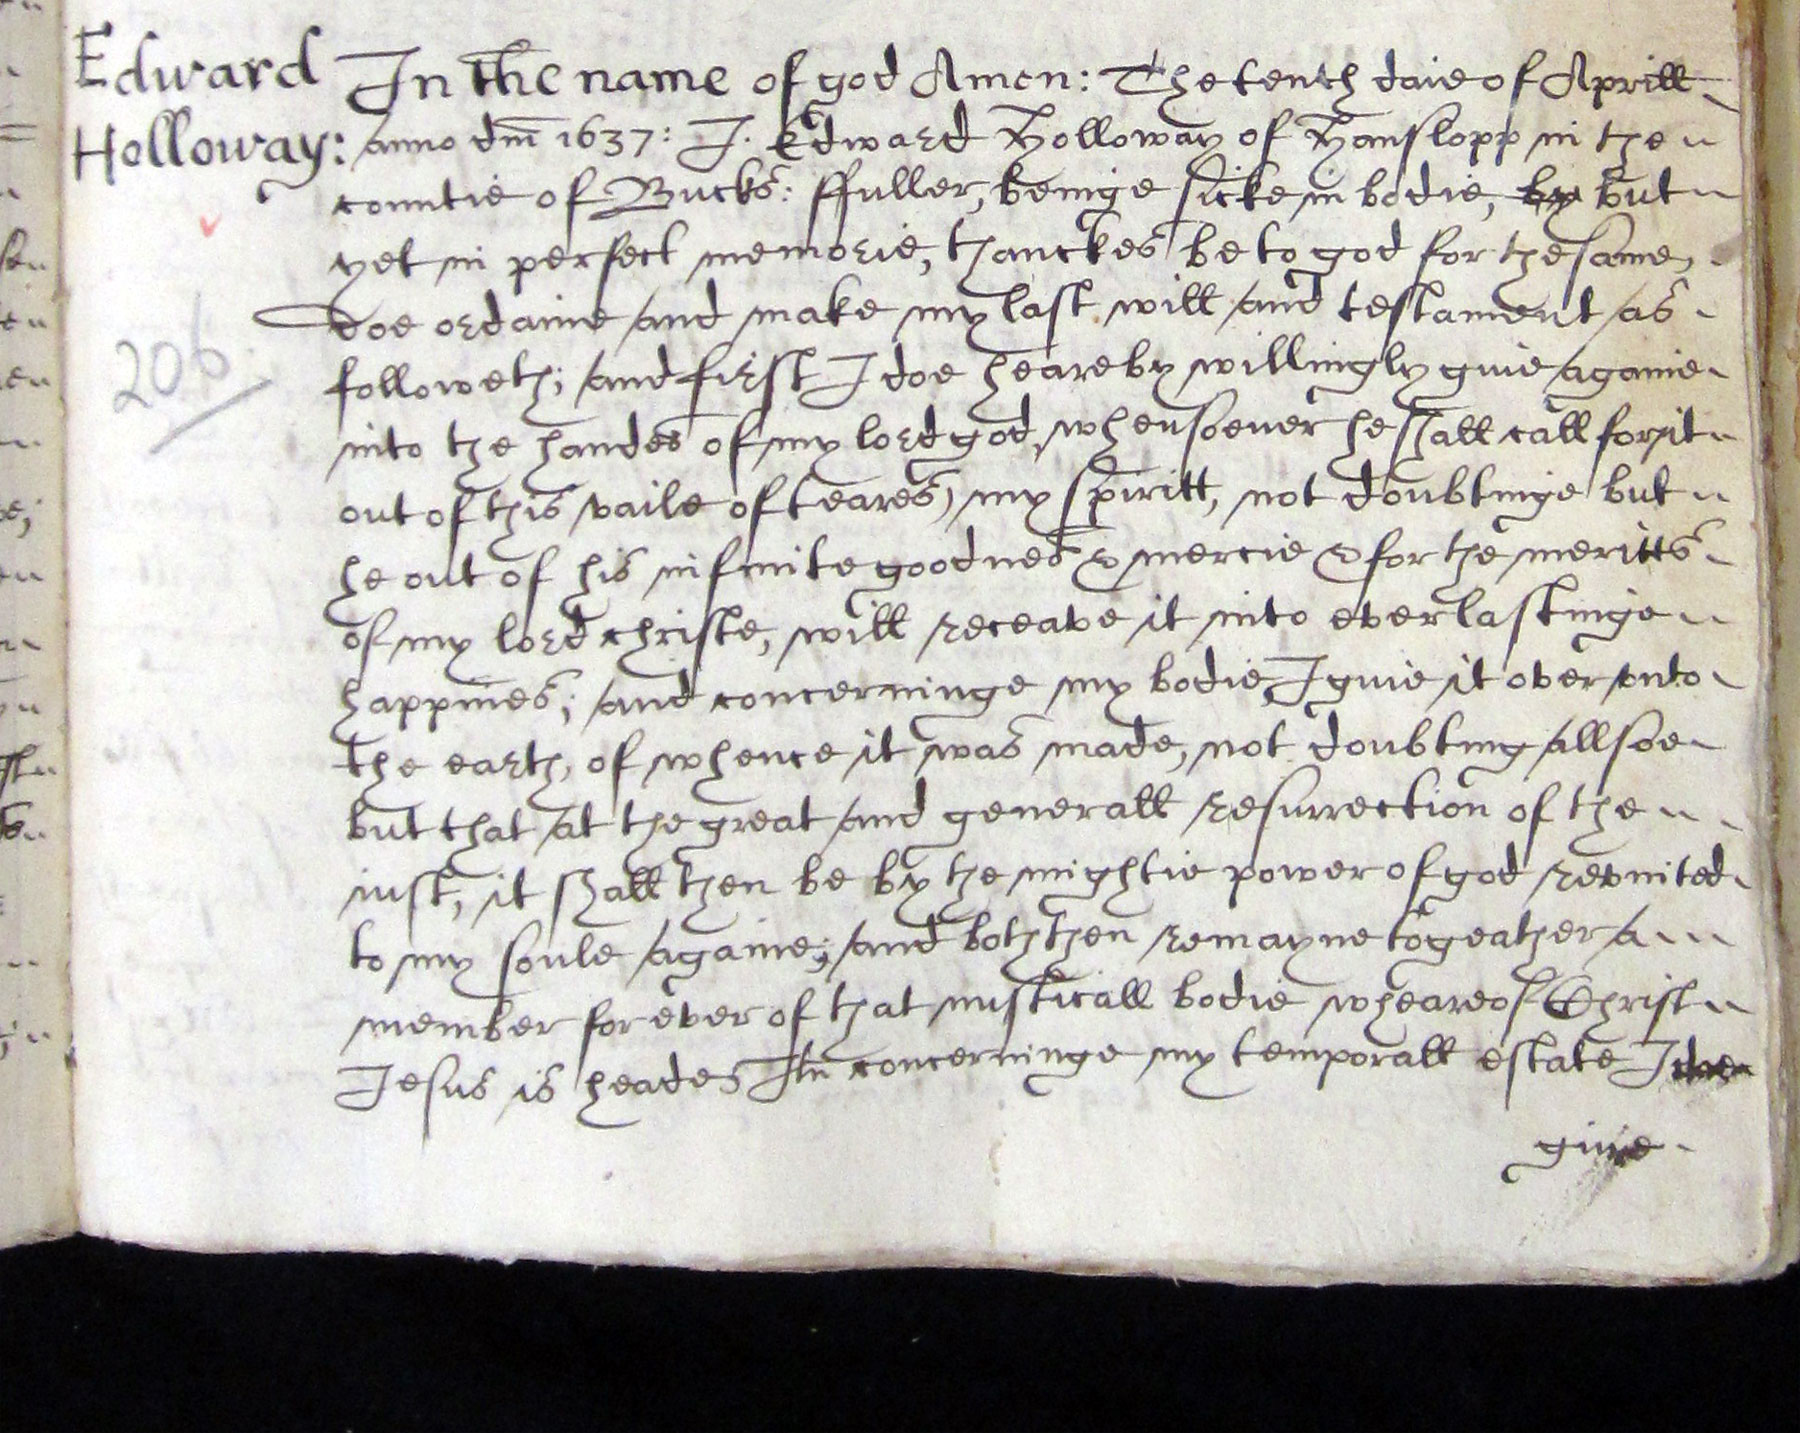 Edward
Holloway:
In the name of god Amen: The tenth daie of Aprill
anno dm̄ 1637: I. Edward Holloway of Hanslopp in the
countie of Bucks: ffuller, beinge sicke in bodie, by but
yet in perfect memorie, thanckes be to god for the same,
doe ordaine and make my last will and testament as
followeth; and first I doe heareby willingly giue againe
into the handes of my lord god, whensoeuer he shall call for it
out of this vaile of teares, my spiritt, not doubtinge but
he out of his infinite goodnes & mercie & for the meritts
of my lord christe, will receave it into everlastinge
happines; and concerninge my bodie, I giue it over vnto
the earth, of whence it was made, not doubting allsoe
but that at the great and generall resurrection of the
iust, it shall then be by the mightie power of god revnited
to my soule againe; and both then remayne togeather a
member for ever of that misticall bodie wheareof Christ
Jesus is heade Itm̄ concerninge my temporall estate I doe
giue
206